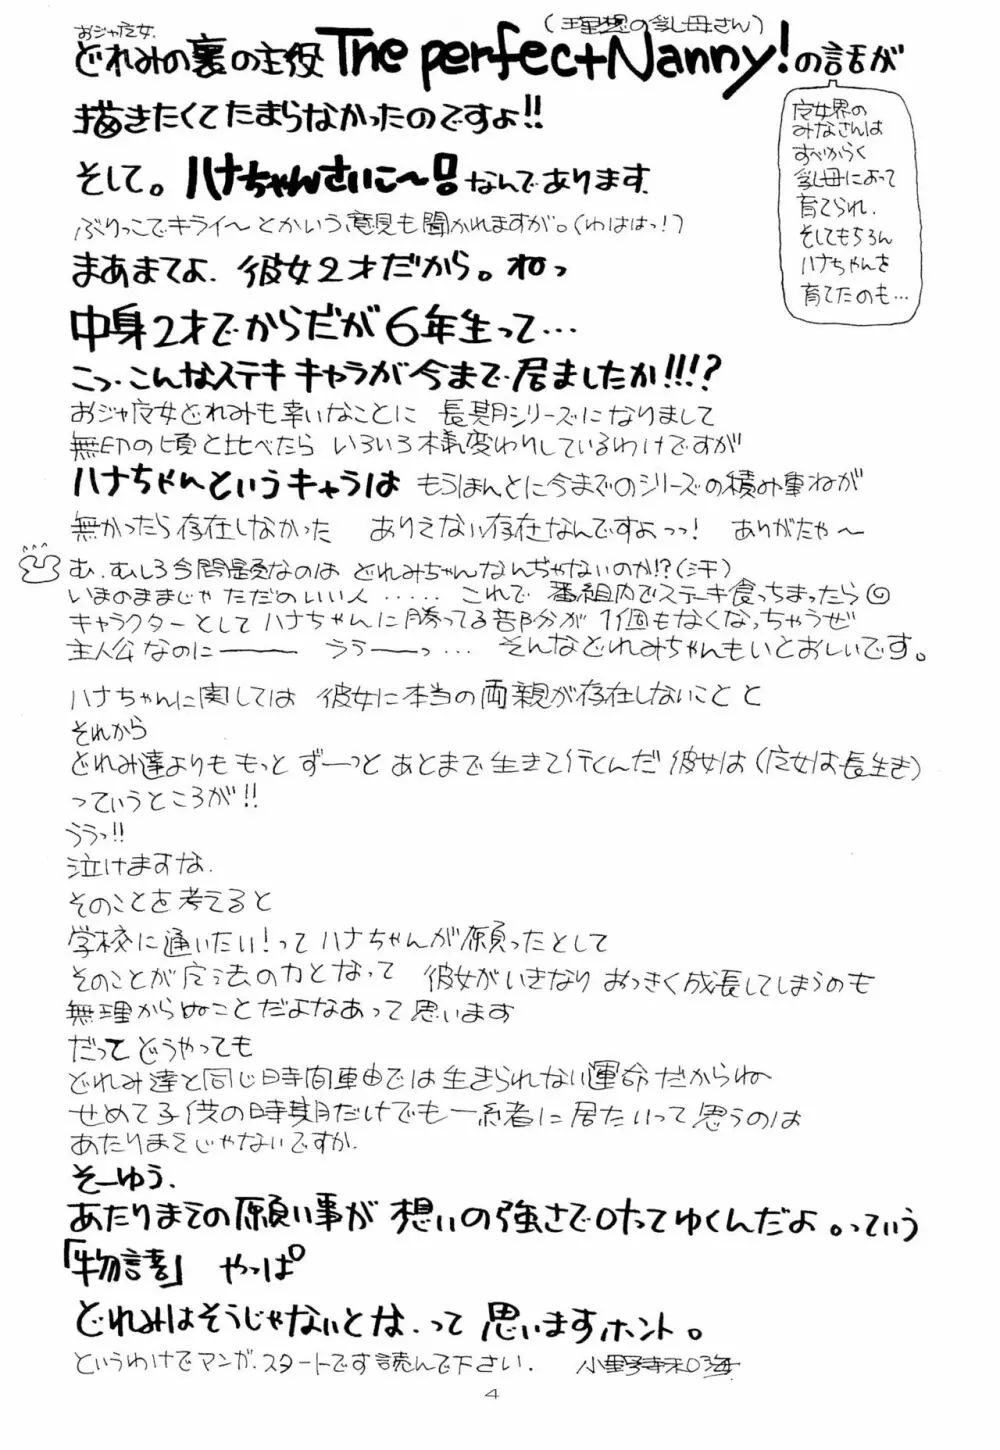 (理想の乳母さん)
おジャ魔女
どれみの裏の主役The perfect Nanny!の話が
描きたくてたまらなかったのですよ!!
そして。ハナちゃんさいこ〜!!なんであります.
ぶりっこでキライ〜とかいう意見も聞かれますが。(わははっ!)
まあまてよ. 彼女2才だから。ねっ
中身2才でからだが6年生って…
こっ.こんなステキキャラが今まで居ましたか!!!?
魔女界の
みなさんは
すべからく
乳母によって
育てられ.
そしてもちろん
ハナちゃんを
育てたのも…
おジャ魔女どれみも幸いなことに 長期シリーズになりまして
無印の頃と比べたら いろいろ様変わりしているわけですが
ハナちゃんというキャラは もうほんとに今までのシリーズの積み重ねが
無かったら存在しなかった ありえない存在なんですよっっ! ありがたや〜
む.むしろ今問題なのは どれみちゃんなんぢゃないのか!?(汗)
いまのままじゃ ただのいい人 ‥‥‥ これで 番組内でステーキ食っちまったら
キャラクターとしてハナちゃんに勝ってる部分が 1個もなくなっちゃうぜ
主人公なのに─── ううーっ… そんなどれみちゃんもいとおしいです。
ハナちゃんに関しては 彼女に本当の両親が存在しないことと
それから
どれみ達よりももっと ずーっと あとまで生きて行くんだ彼女は(魔女は長生き)
っていうところが!!
ううっ!!
泣けますな.
そのことを考えると
学校に通いたい!ってハナちゃんが願ったとして
そのことが魔法の力となって 彼女がいきなり おっきく成長してしまうのも
無理からぬことだよなあって思います
だって どうやっても
どれみ達と同じ時間軸では生きられない運命だからねー
せめて子供の時期だけでも一緒に居たいって思うのは
あたりまえじゃないですか.
そーゆう.
あたりまえの願い事が 想いの強さで叶ってゆくんだよ。っていう
「物語」 やっぱ
どれみはそうじゃないとな.って 思いますホント。
というわけでマンガ.スタートです読んで下さい. 小野寺和海
4